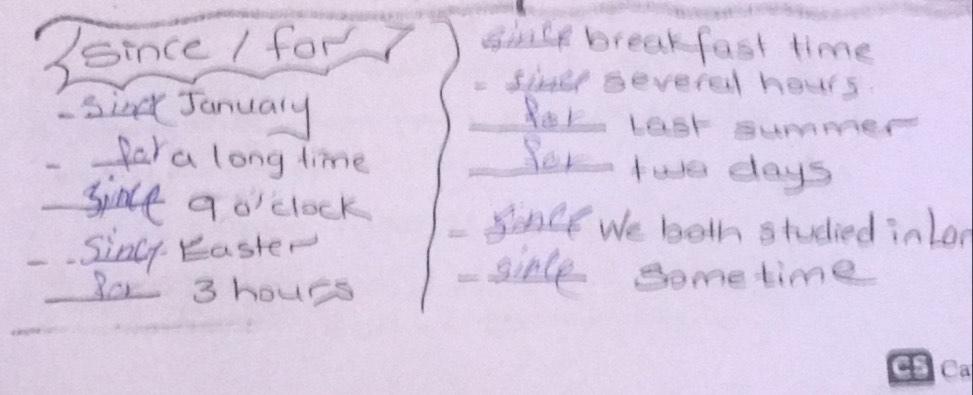 since / for
- since January
- for a long time
since 9 o'clock
- since Easter
for 3 hours
since breakfast time
- since several hours.
for last summer
for two days
- since We both studied in Lon
- since some time
CS Ca